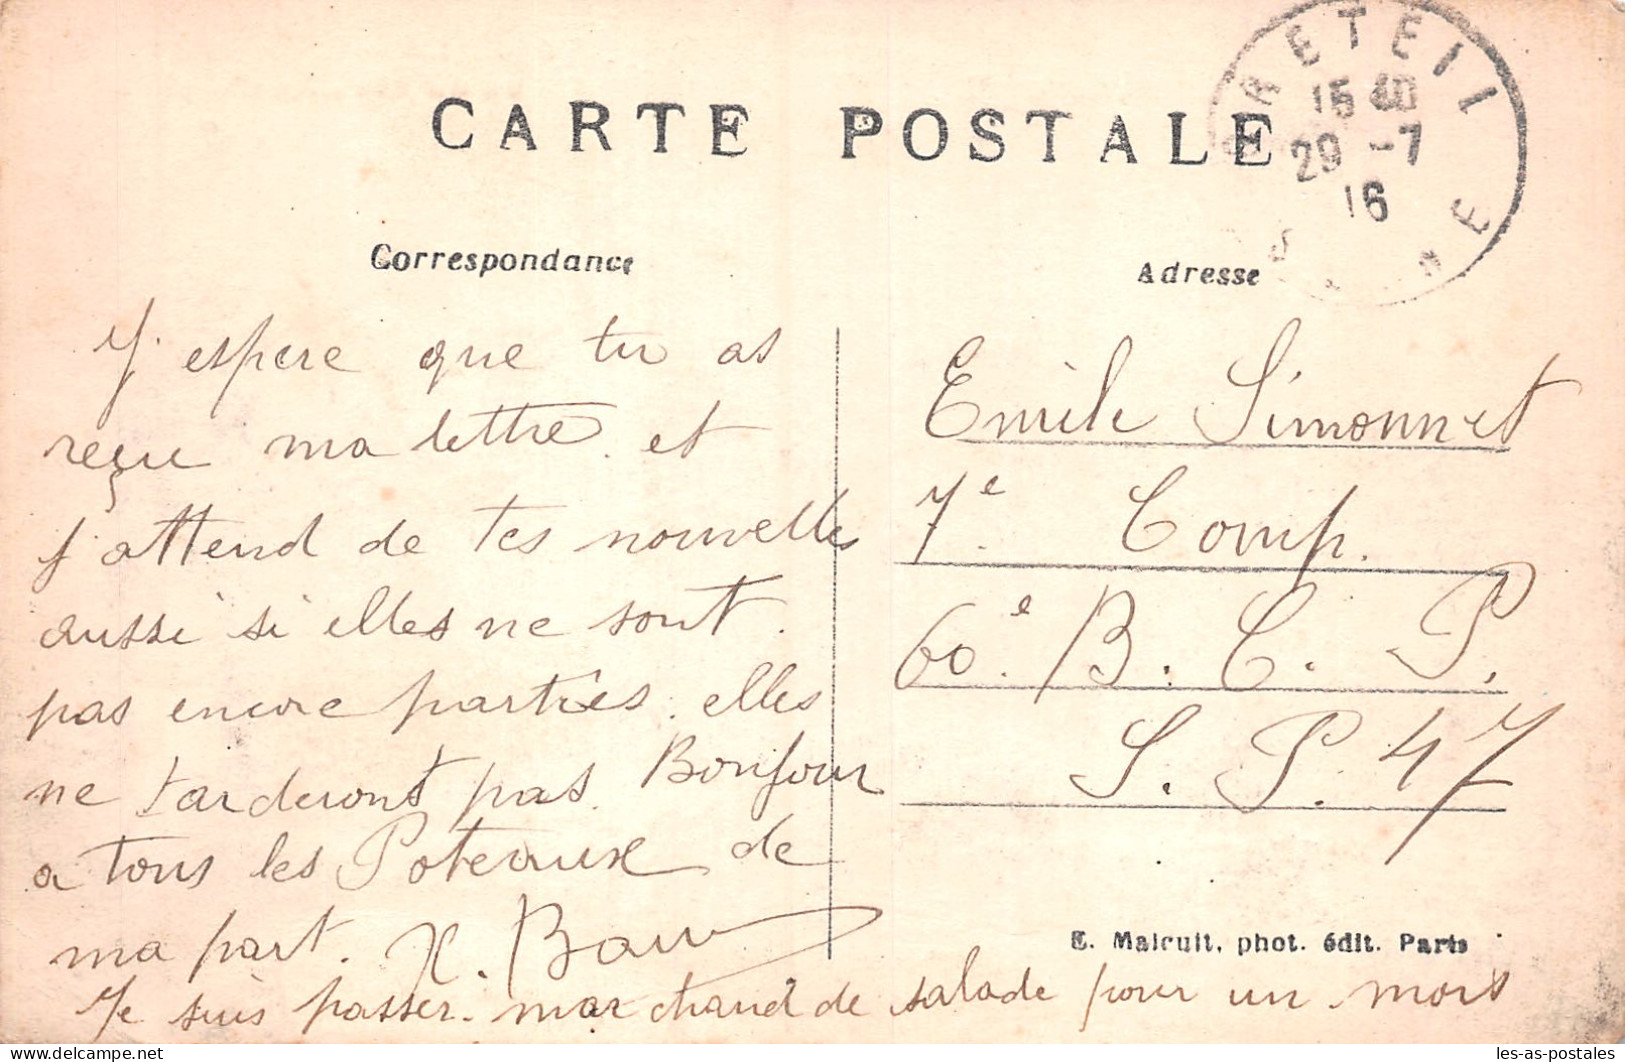 CARTE POSTALE
CRETEIL
15 40
29 -7
16
SEINE
Correspondance
Adresse
J'espere que tu as
reçu ma lettre et
j'attend de tes nouvelles
aussi si elles ne sont
pas encore parties. elles
ne tarderont pas. Bonjour
a tous les Poteaux de
ma part.
Je suis passer. marchand de salade pour un mois
Emile Simonnet
7e. Comp.
60e. B. C. P.
S. P. 47
E. Malcuit, phot. édit. Paris
les-as-postales
delcampe.net